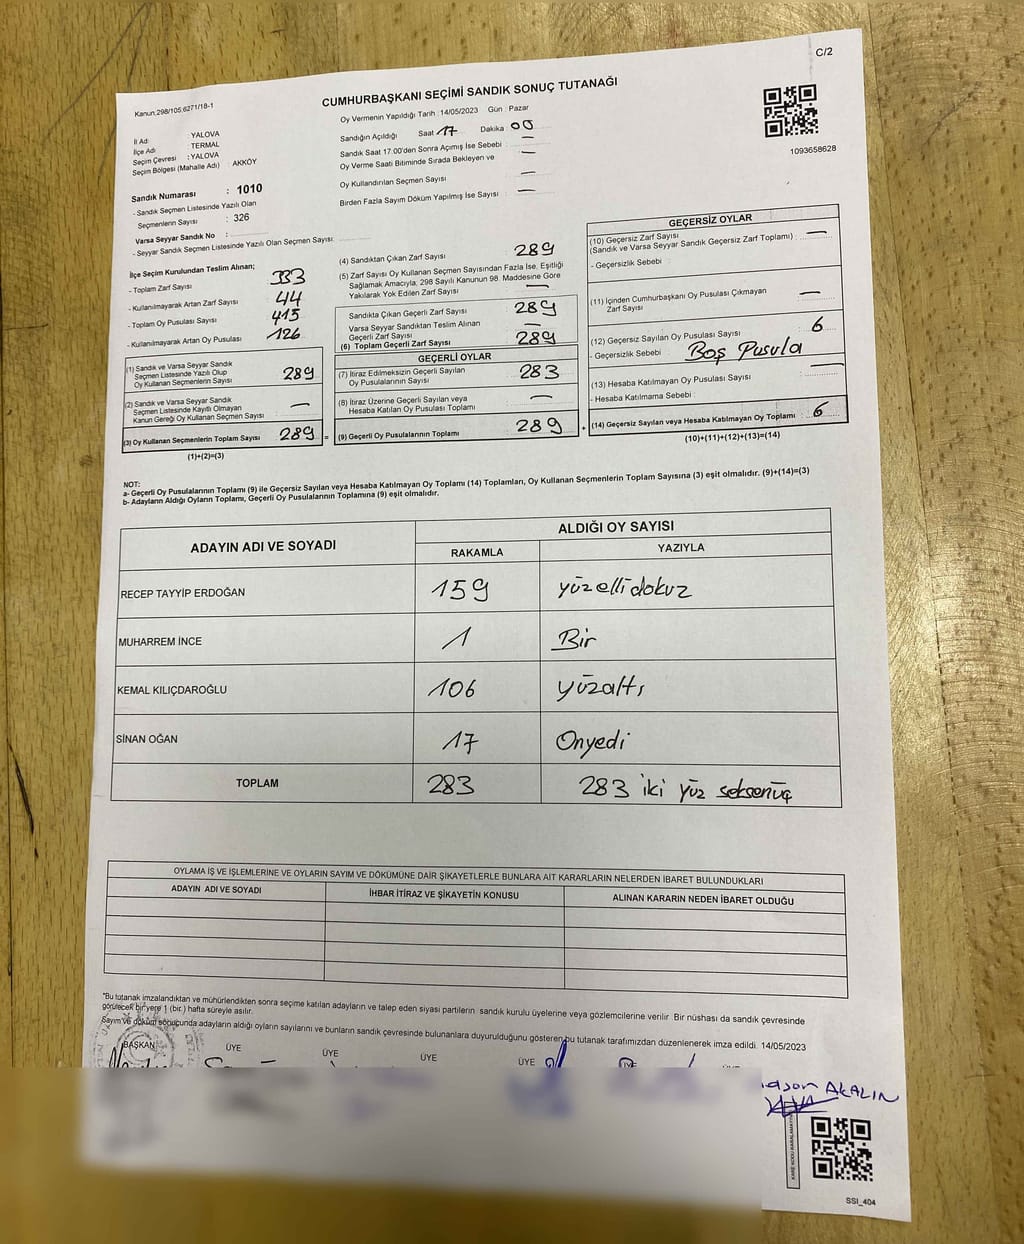 C/2
Kanun:298/105,6271/18-1
CUMHURBAŞKANI SEÇİMİ SANDIK SONUÇ TUTANAĞI
İl Adı : YALOVA
İlçe Adı : TERMAL
Seçim Çevresi : YALOVA
Seçim Bölgesi (Mahalle Adı) : AKKÖY
Sandık Numarası : 1010
- Sandık Seçmen Listesinde Yazılı Olan
Seçmenlerin Sayısı : 326
Varsa Seyyar Sandık No :
- Seyyar Sandık Seçmen Listesinde Yazılı Olan Seçmen Sayısı:
Oy Vermenin Yapıldığı Tarih : 14/05/2023 Gün : Pazar
Sandığın Açıldığı Saat 17 Dakika : 00
Sandık Saat 17:00'den Sonra Açımış İse Sebebi : —
Oy Verme Saati Bitiminde Sırada Bekleyen ve —
Oy Kullandırılan Seçmen Sayısı : —
Birden Fazla Sayım Döküm Yapılmış İse Sayısı : —
1093658628
İlçe Seçim Kurulundan Teslim Alınan;
- Toplam Zarf Sayısı : 333
- Kullanılmayarak Artan Zarf Sayısı : 44
- Toplam Oy Pusulası Sayısı : 415
- Kullanılmayarak Artan Oy Pusulası : 126
(1) Sandık ve Varsa Seyyar Sandık
Seçmen Listesinde Yazılı Olup
Oy Kullanan Seçmenlerin Sayısı : 289
(2) Sandık ve Varsa Seyyar Sandık
Seçmen Listesinde Kayıtlı Olmayan
Kanun Gereği Oy Kullanan Seçmen Sayısı : —
(3) Oy Kullanan Seçmenlerin Toplam Sayısı : 289 =
(1)+(2)=(3)
(4) Sandıktan Çıkan Zarf Sayısı : 289
(5) Zarf Sayısı Oy Kullanan Seçmen Sayısından Fazla İse, Eşitliği
Sağlamak Amacıyla, 298 Sayılı Kanunun 98. Maddesine Göre
Yakılarak Yok Edilen Zarf Sayısı : —
Sandıkta Çıkan Geçerli Zarf Sayısı : 289
Varsa Seyyar Sandıktan Teslim Alınan
Geçerli Zarf Sayısı : —
(6) Toplam Geçerli Zarf Sayısı : 289
GEÇERLİ OYLAR
(7) İtiraz Edilmeksizin Geçerli Sayılan
Oy Pusulalarının Sayısı : 283
(8) İtiraz Üzerine Geçerli Sayılan veya
Hesaba Katılan Oy Pusulası Toplamı : —
(9) Geçerli Oy Pusulalarının Toplamı : 289 +
GEÇERSİZ OYLAR
(10) Geçersiz Zarf Sayısı
(Sandık ve Varsa Seyyar Sandık Geçersiz Zarf Toplamı) : —
- Geçersizlik Sebebi :
(11) İçinden Cumhurbaşkanı Oy Pusulası Çıkmayan
Zarf Sayısı : —
(12) Geçersiz Sayılan Oy Pusulası Sayısı : 6
- Geçersizlik Sebebi : Boş Pusula
(13) Hesaba Katılmayan Oy Pusulası Sayısı : —
- Hesaba Katılmama Sebebi :
(14) Geçersiz Sayılan veya Hesaba Katılmayan Oy Toplamı : 6
(10)+(11)+(12)+(13)=(14)
NOT:
a- Geçerli Oy Pusulalarının Toplamı (9) ile Geçersiz Sayılan veya Hesaba Katılmayan Oy Toplamı (14) Toplamları, Oy Kullanan Seçmenlerin Toplam Sayısına (3) eşit olmalıdır. (9)+(14)=(3)
b- Adayların Aldığı Oyların Toplamı, Geçerli Oy Pusulalarının Toplamına (9) eşit olmalıdır.
ADAYIN ADI VE SOYADI ALDIĞI OY SAYISI
RAKAMLA YAZIYLA
RECEP TAYYİP ERDOĞAN 159 yüzellidokuz
MUHARREM İNCE 1 Bir
KEMAL KILIÇDAROĞLU 106 yüzaltı
SİNAN OĞAN 17 Onyedi
TOPLAM 283 283 iki yüz seksenüç
OYLAMA İŞ VE İŞLEMLERİNE VE OYLARIN SAYIM VE DÖKÜMÜNE DAİR ŞİKAYETLERLE BUNLARA AİT KARARLARIN NELERDEN İBARET BULUNDUKLARI
ADAYIN ADI VE SOYADI İHBAR İTİRAZ VE ŞİKAYETİN KONUSU ALINAN KARARIN NEDEN İBARET OLDUĞU
*Bu tutanak imzalandıktan ve mühürlendikten sonra seçime katılan adayların ve talep eden siyasi partilerin sandık kurulu üyelerine veya gözlemcilerine verilir. Bir nüshası da sandık çevresinde
görülecek bir yere 1 (bir) hafta süreyle asılır.
Sayım ve döküm sonucunda adayların aldığı oyların sayılarını ve bunların sandık çevresinde bulunanlara duyurulduğunu gösteren bu tutanak tarafımızdan düzenlenerek imza edildi. 14/05/2023
BAŞKAN ÜYE ÜYE ÜYE ÜYE ÜYE
AKALIN
SSI_404